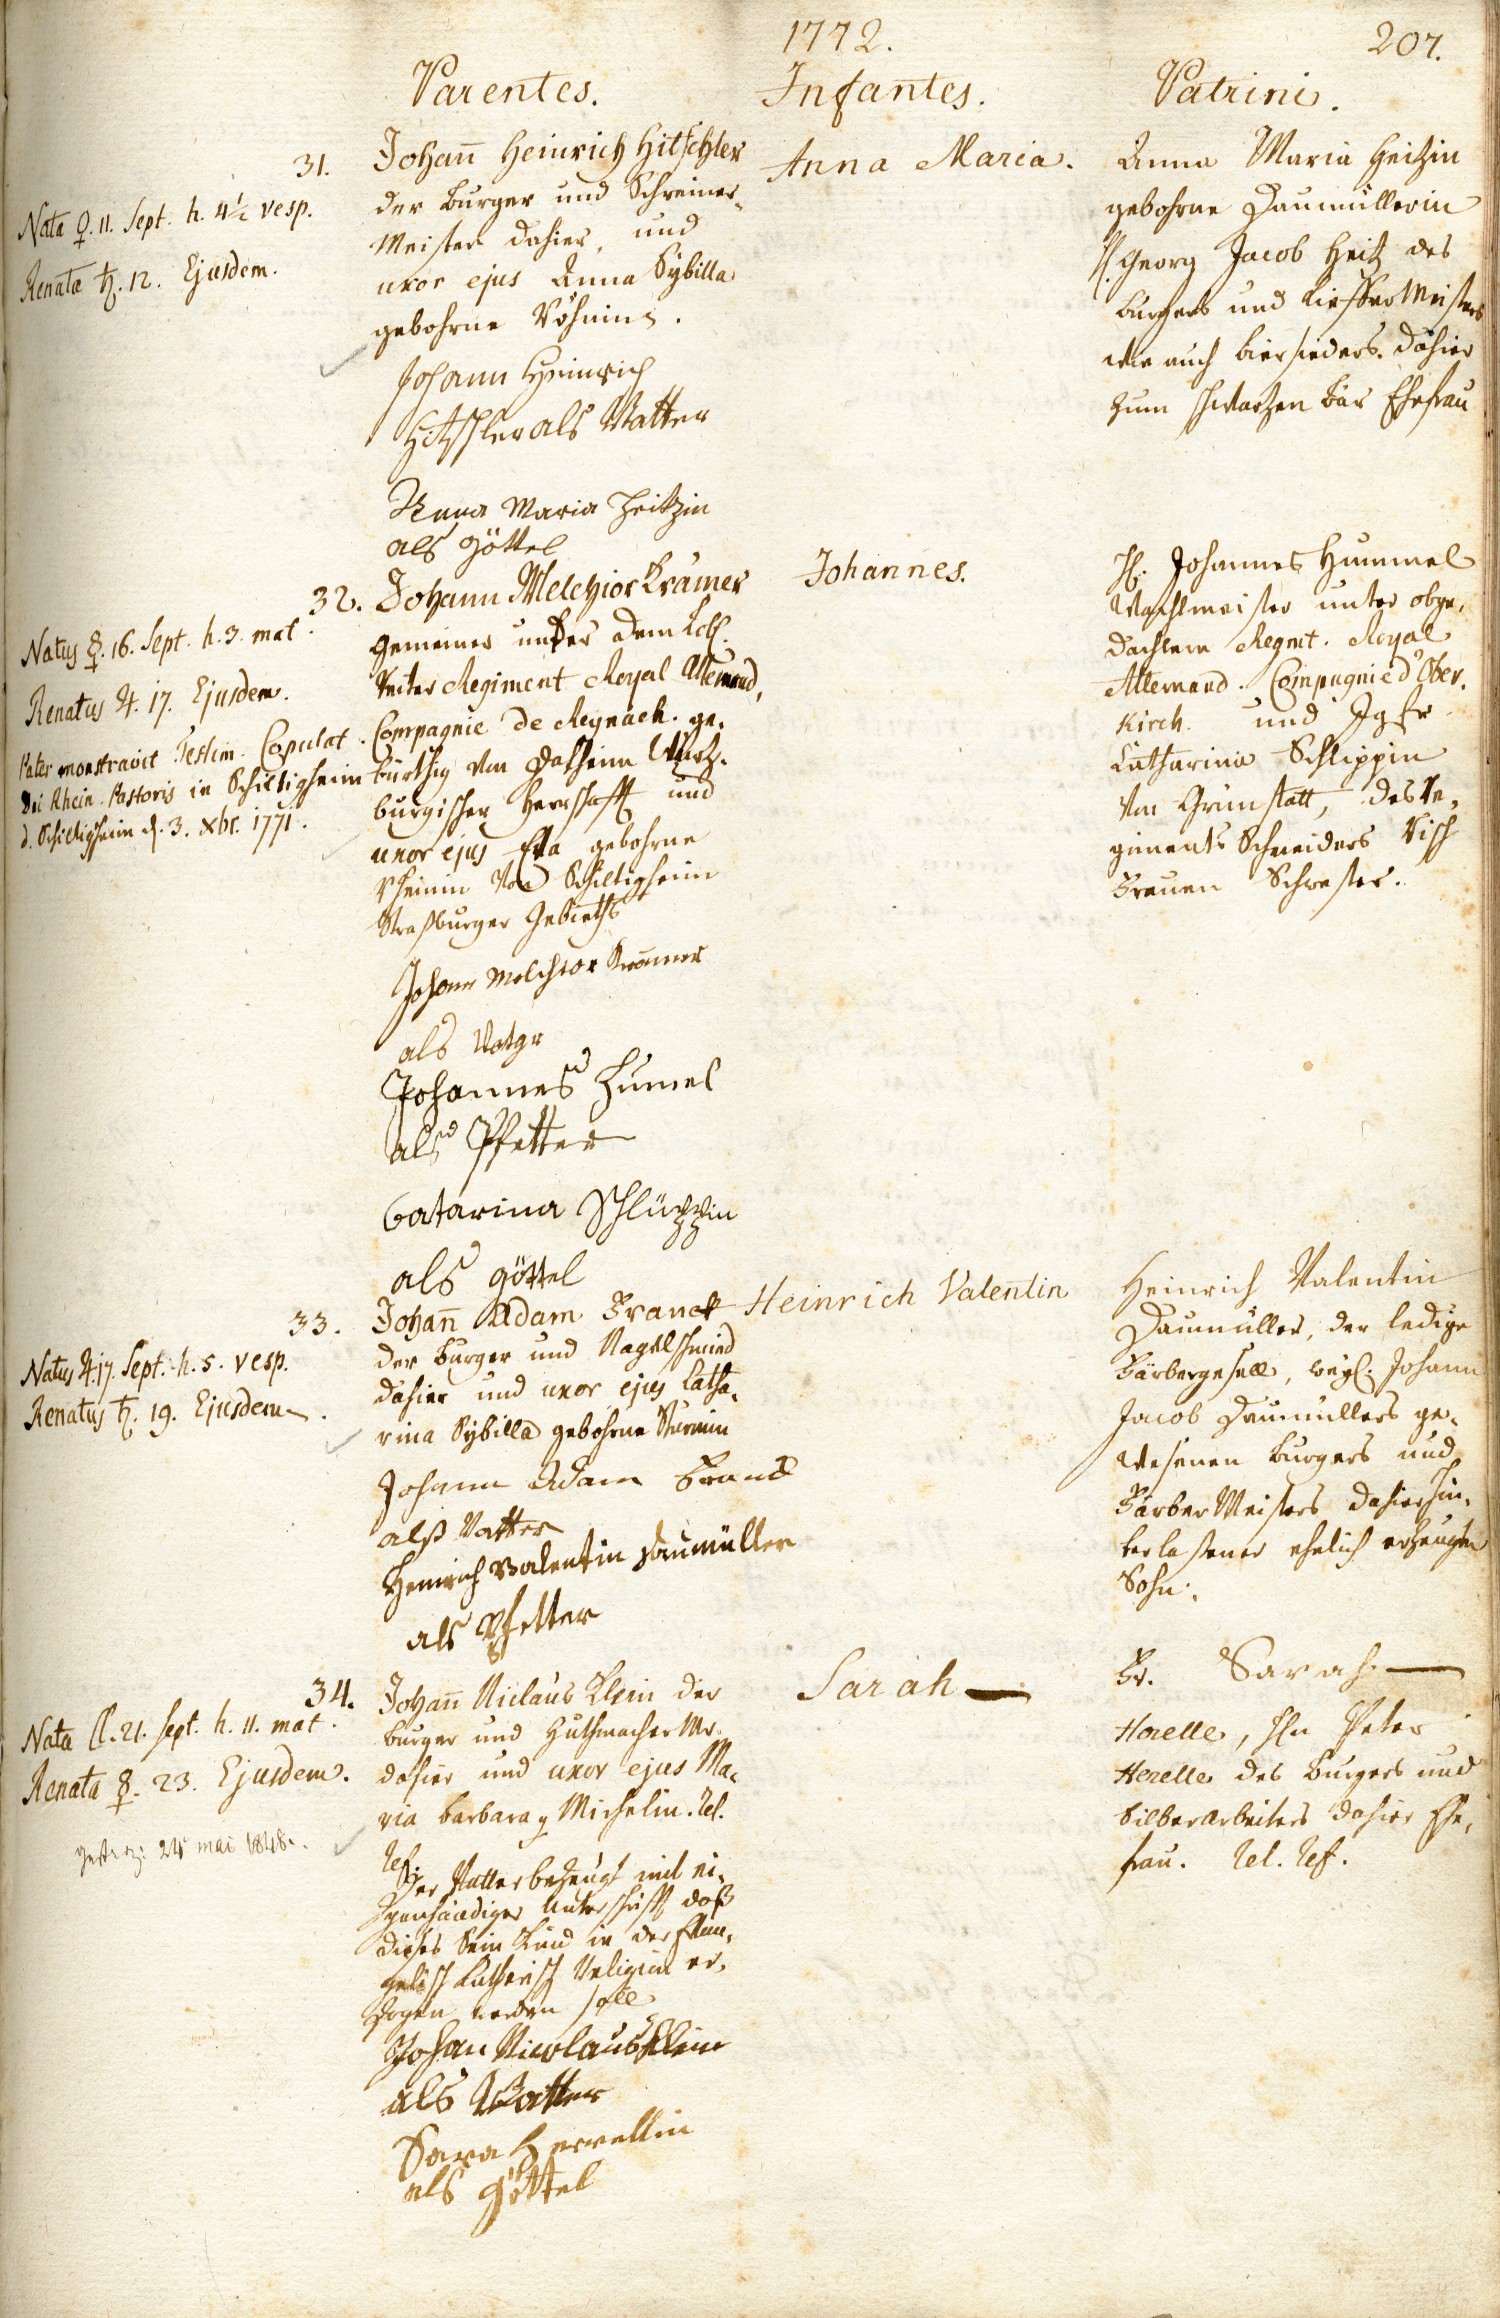 1772.
207.
Parentes.
Infantes.
Patrini.
31.
Nata ♀. 11. Sept. h. 4½ vesp.
Renata ♄. 12. Ejusdem.
Johan̄ Heinrich Hitschler
der Burger und Schreiner-
Meister dahier, und
uxor ejus Anna Sybilla
gebohrne Böhmin.
Johann Heinrich
Hitschler als Vatter
Anna Maria Heitzin
als göttel
Anna Maria.
Anna Maria Heitzin
gebohrne Daumüllerin
H. Georg Jacob Heitz des
Burgers und Kieffer Meisters
wie auch Biersieders dahier
zum schwartzen Bär Ehefrau
32.
Natus ☿. 16. Sept. h. 3. mat.
Renatus ♃. 17. Ejusdem.
Pater monstravit Testim. Copulat.
Dni Rhein. Pastoris in Schiltigheim
d. Schiltigheim d. 3. Xbr. 1771.
Johann Melchior Krämer
Gemeiner unter dem Löbl.
Reiter Regiment Royal Allemand,
Compagnie de Reynach. ge-
bürthig von Dalheim Würtz-
burgischer Herrschafft und
uxor ejus Eva gebohrne
Rheinin von Schiltigheim
Straßburger Gebieths
Johann Melchior Krämer
als Vatgr
Johannes Humel
als Pfetter
Catarina Schlüppin
als göttel
Johannes.
H. Johannes Hummel
Wachtmeister unter obge-
dachtem Regmt. Royal
Allemand. Compagnie d'Ober-
kirch. und Jgfr
Catharina Schlippin
von Grünstatt, des Re-
giments Schneiders Visch
Frauen Schwester.
33.
Natus ♃. 17. Sept. h. 5. vesp.
Renatus ♄. 19. Ejusdem.
Johan̄ Adam Franck
der Burger und Nagelschmied
dahier und uxor ejus Catha-
rina Sybilla gebohrne Sturmin
Johann Adam Franck
alß Vatter
Heinrich Valentin Daumüller
als Pfetter
Heinrich Valentin
Heinrich Valentin
Daumüller, der ledige
Färbergesell, weyl. Johann
Jacob Daumüllers ge-
wesenen Burgers und
Färber Meisters dahier hin-
terlaßener ehelich erzeugter
Sohn.
34.
Nata ☾. 21. Sept. h. 11. mat.
Renata ☿. 23. Ejusdem.
24 mai 1848.
Johan̄ Niclaus Klein der
Burger und Huthmacher Mr.
dahier und uxor ejus Ma-
ria Barbara g. Michelin. Rel.
Ref.
Der Vatter bezeugt mit ei-
genhändiger Unterschrifft daß
dießes Sein Kind in der Evan-
gelisch Lutherisch Religion er-
zogen werden solle
Johan Nicolaus Klein
als Vatter
Sara Herrellin
als göttel
Sarah
Fr. Sarah
Herelle, Hn Peter
Herelle des Burgers und
Silberarbeiters dahier Ehe-
frau. Rel. Ref.